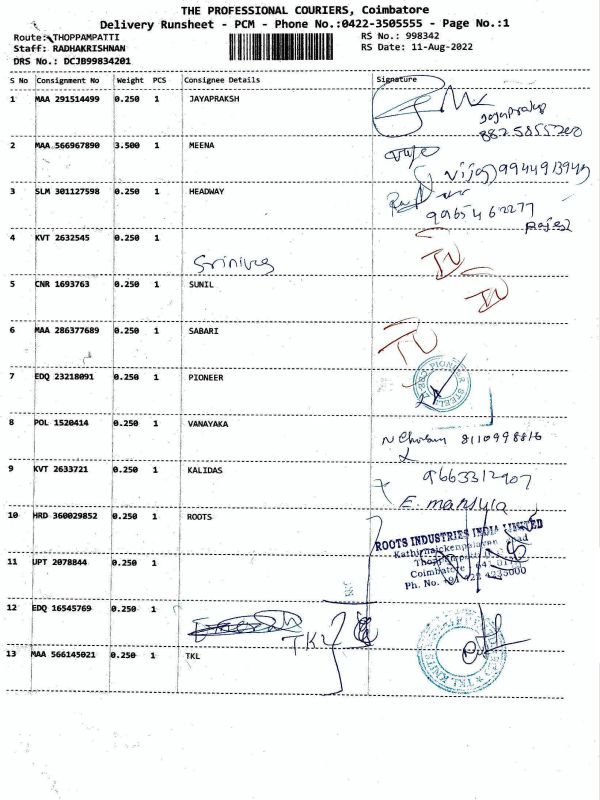 THE PROFESSIONAL COURIERS, Coimbatore
Delivery Runsheet - PCM - Phone No.:0422-3505555 - Page No.:1
Route: THOPPAMPATTI
RS No.: 998342
Staff: RADHAKRISHNAN
RS Date: 11-Aug-2022
DRS No.: DCJB99834201
S No Consignment No Weight PCS Consignee Details Signature
1 MAA 291514499 0.250 1 JAYAPRAKSH
2 MAA 566967890 3.500 1 MEENA
Vijay 9944913949
3 SLM 301127598 0.250 1 HEADWAY
9965462277
4 KVT 2632545 0.250 1
Srinivas
5 CNR 1693763 0.250 1 SUNIL
6 MAA 286377689 0.250 1 SABARI
7 EDQ 23218091 0.250 1 PIONEER
PIONEER STEEL
8 POL 1520414 0.250 1 VANAYAKA
8110998816
9 KVT 2633721 0.250 1 KALIDAS
9663312907
E. manjula
10 HRD 360029852 0.250 1 ROOTS
ROOTS INDUSTRIES INDIA LIMITED
Kathirnaickenpalayam Road
Coimbatore
Ph. No. +91 422 4233000
11 UPT 2078844 0.250 1
12 EDQ 16545769 0.250 1
T.K.L
13 MAA 566145021 0.250 1 TKL
TKL KNITS